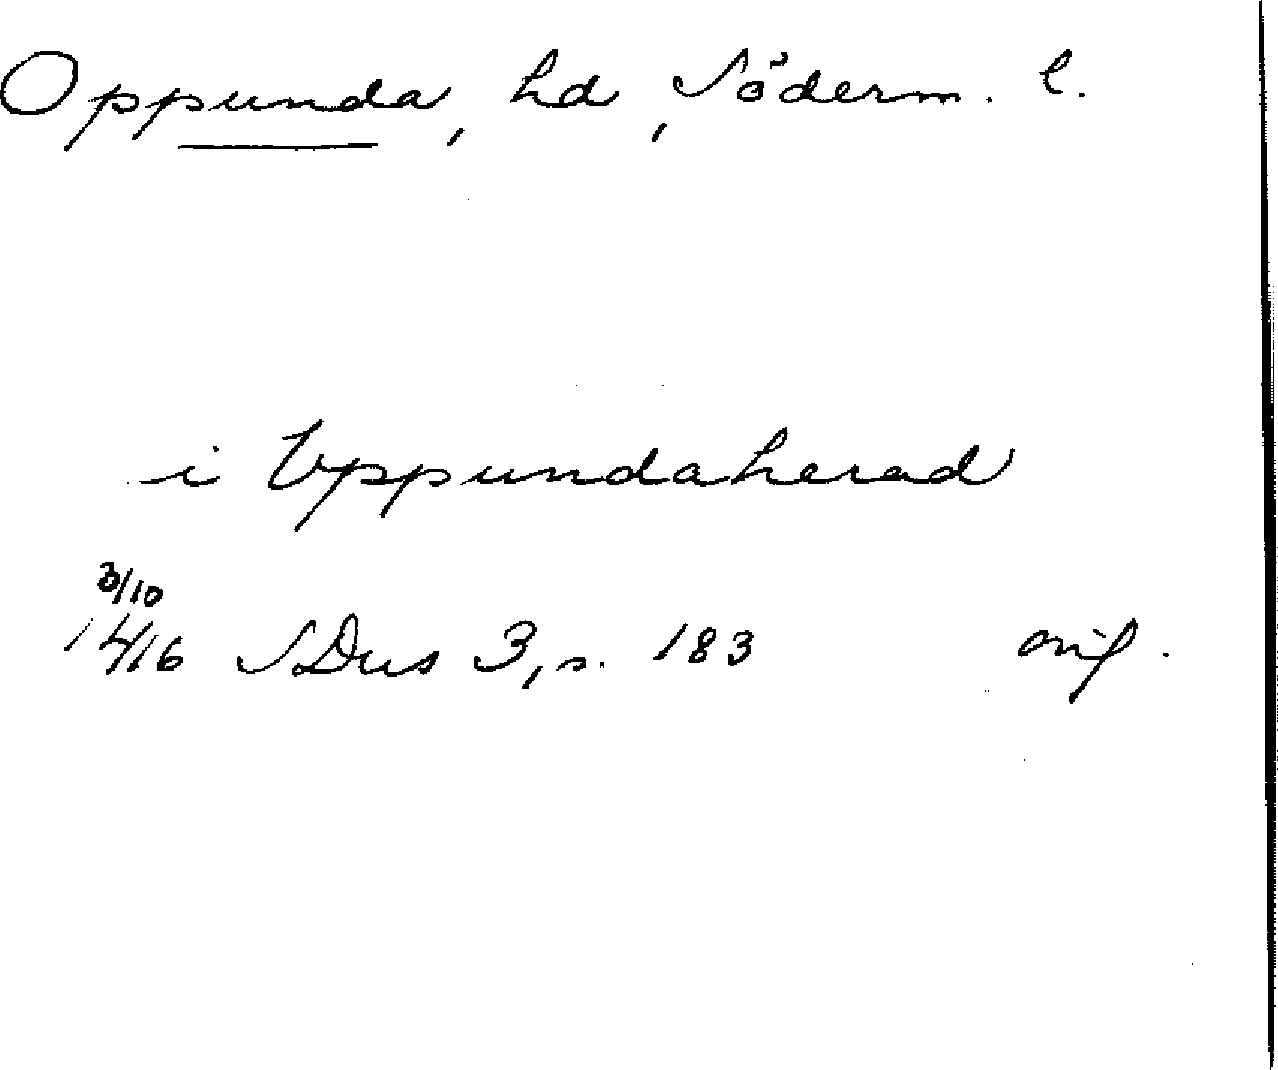 Oppunda, hd, Söderm. l.
i Vppundaherad
3/10
1416 SDns 3, s. 183 orig.